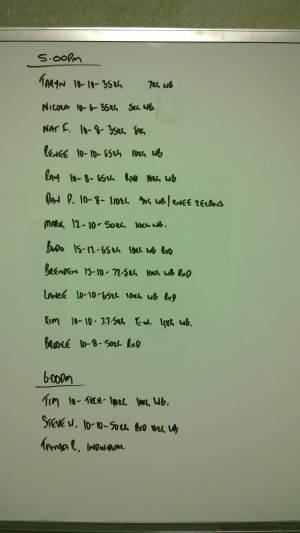 5:00pm
TARYN 10-10-35KG 7KG WB
NICOLA 10-6-35KG 5KG WB
NAT F. 10-8-35KG 5KG
RENEE 10-10-65KG 10KG WB
RAY 10-8-65KG RXD 10KG WB
DAN P. 10-8-40KG 9KG WB/KNEE 2 ELBOWS
MARK 12-10-50KG 10KG WB.
BOBO 15-12-65KG 10KG WB RXD
BRENDEN 15-10-72.5KG 10KG WB RXD
LANCE 10-10-65KG 10KG WB RXD
KIM 10-10-27.5KG 4KG WB.
BROOKE 10-8-50KG RXD
6:00pm
TIM 10-TECH-40KG 10KG WB.
STEVE W. 10-10-50KG RXD 10KG WB